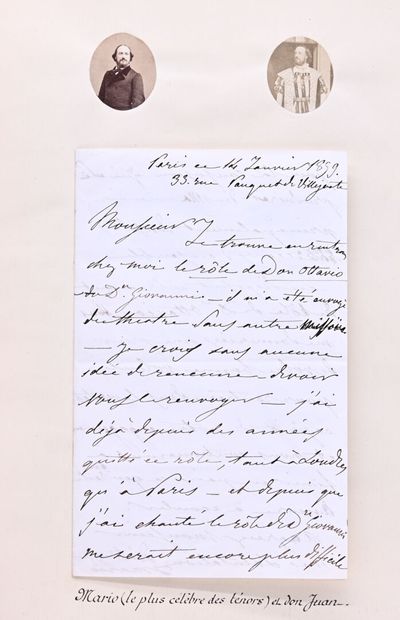 Paris ce 14 Janvier 1859.
33. rue Pauquet de Villejuste
Monsieur
Je trouve en rentrant
chez moi le rôle de Don Ottavio
du Dn Giovanni – il m'a été envoyé
du théatre sans autre missive
– Je crois sans aucune
idée de rancune – devoir
vous le renvoyer – j'ai
déjà depuis des années
quitté ce rôle, tant à Londres
qu'à Paris – et depuis que
j'ai chanté le rôle de Dn Giovanni
me serait encore plus difficile
Mario (le plus célèbre des ténors) et don Juan.